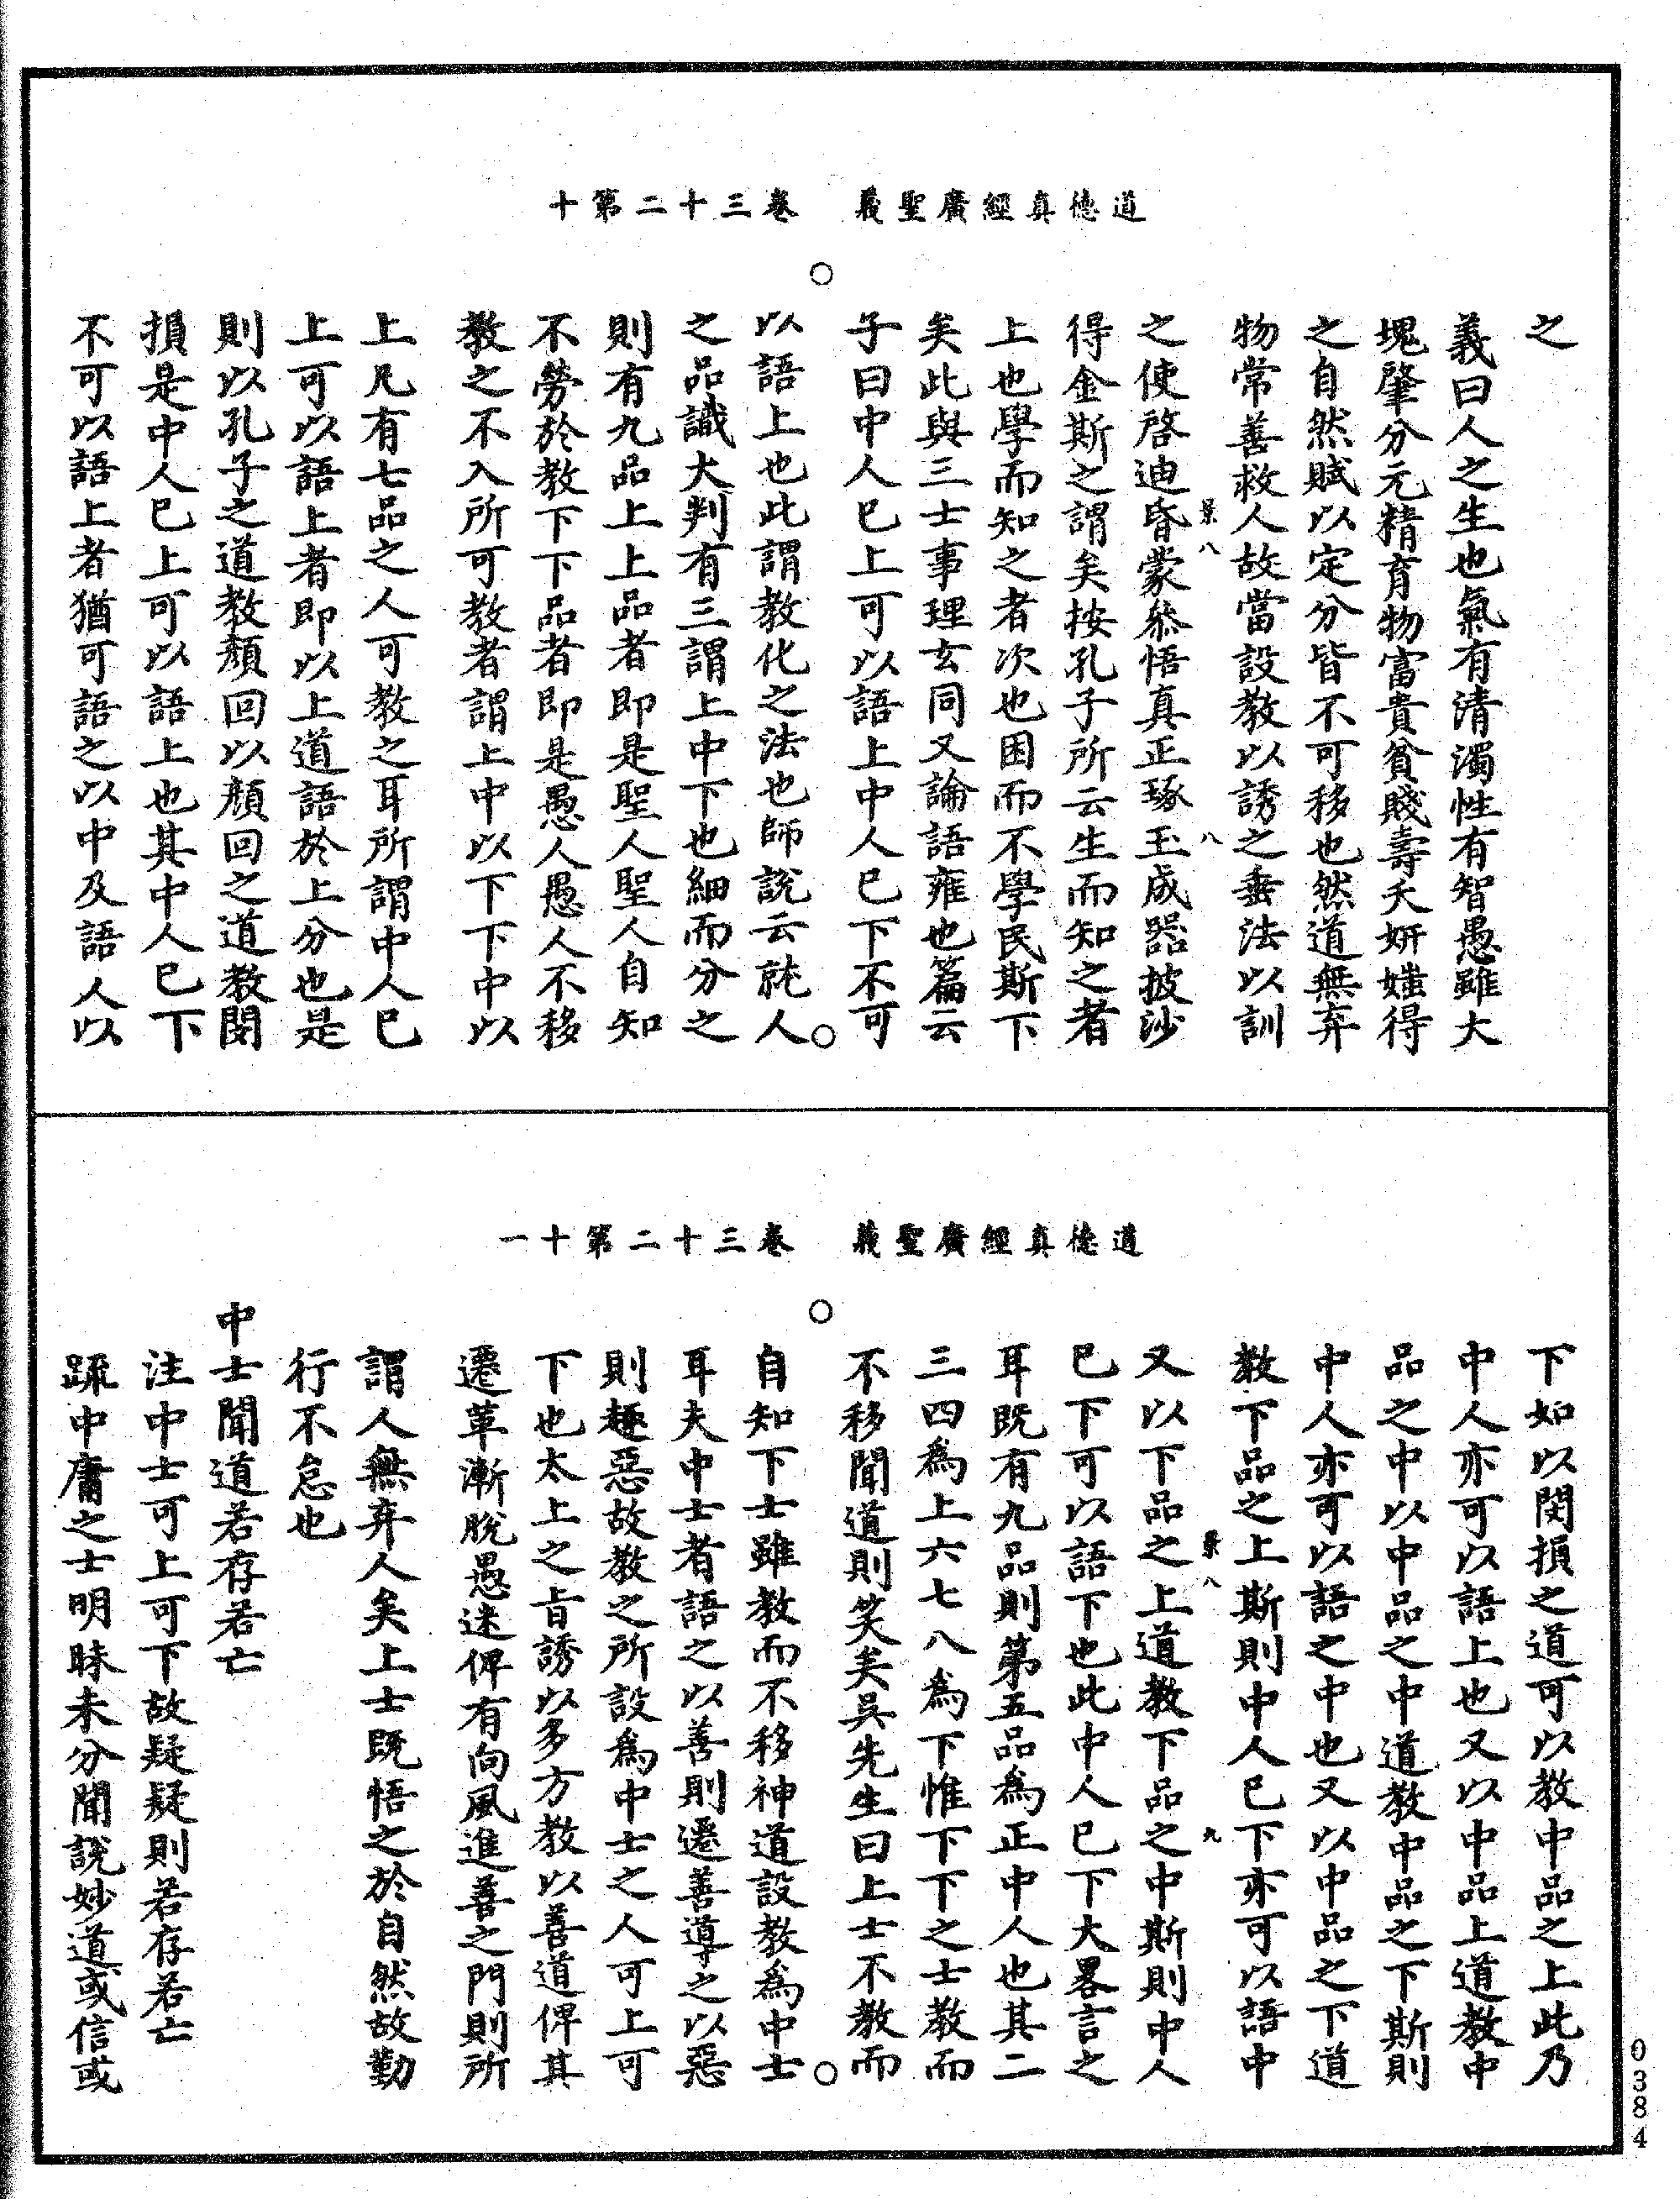 道德真經廣聖義　卷三十二第十
之
義曰人之生也氣有清濁性有智愚雖大
塊肇分元精育物富貴貧賤壽夭妍媸得
之自然賦以定分皆不可移也然道無弃
物常善救人故當設教以誘之垂法以訓
景八　八
之使啓迪昏蒙叅悟真正琢玉成器披沙
得金斯之謂矣按孔子所云生而知之者
上也學而知之者次也困而不學民斯下
矣此與三士事理玄同又論語雍也篇云
子曰中人已上可以語上中人已下不可
以語上也此謂教化之法也師說云就人
之品識大判有三謂上中下也細而分之
則有九品上上品者即是聖人聖人自知
不勞於教下下品者即是愚人愚人不移
教之不入所可教者謂上中以下下中以
上凡有七品之人可教之耳所謂中人已
上可以語上者即以上道語於上分也是
則以孔子之道教顏回以顏回之道教閔
損是中人已上可以語上也其中人已下
不可以語上者猶可語之以中及語人以
道德真經廣聖義　卷三十二第十一
下如以閔損之道可以教中品之上此乃
中人亦可以語上也又以中品上道教中
品之中以中品之中道教中品之下斯則
中人亦可以語之中也又以中品之下道
教下品之上斯則中人已下亦可以語中
景八　九
又以下品之上道教下品之中斯則中人
已下可以語下也此中人已下大畧言之
耳既有九品則第五品為正中人也其二
三四為上六七八為下惟下下之士教而
不移聞道則笑矣吳先生曰上士不教而
自知下士雖教而不移神道設教為中士
耳夫中士者語之以善則遷善導之以惡
則趣惡故教之所設為中士之人可上可
下也太上之旨誘以多方教以善道俾其
遷革漸脫愚迷俾有向風進善之門則所
謂人無弃人矣上士既悟之於自然故勤
行不怠也
中士聞道若存若亡
注中士可上可下故疑疑則若存若亡
疏中庸之士明昧未分聞說妙道或信或
0384